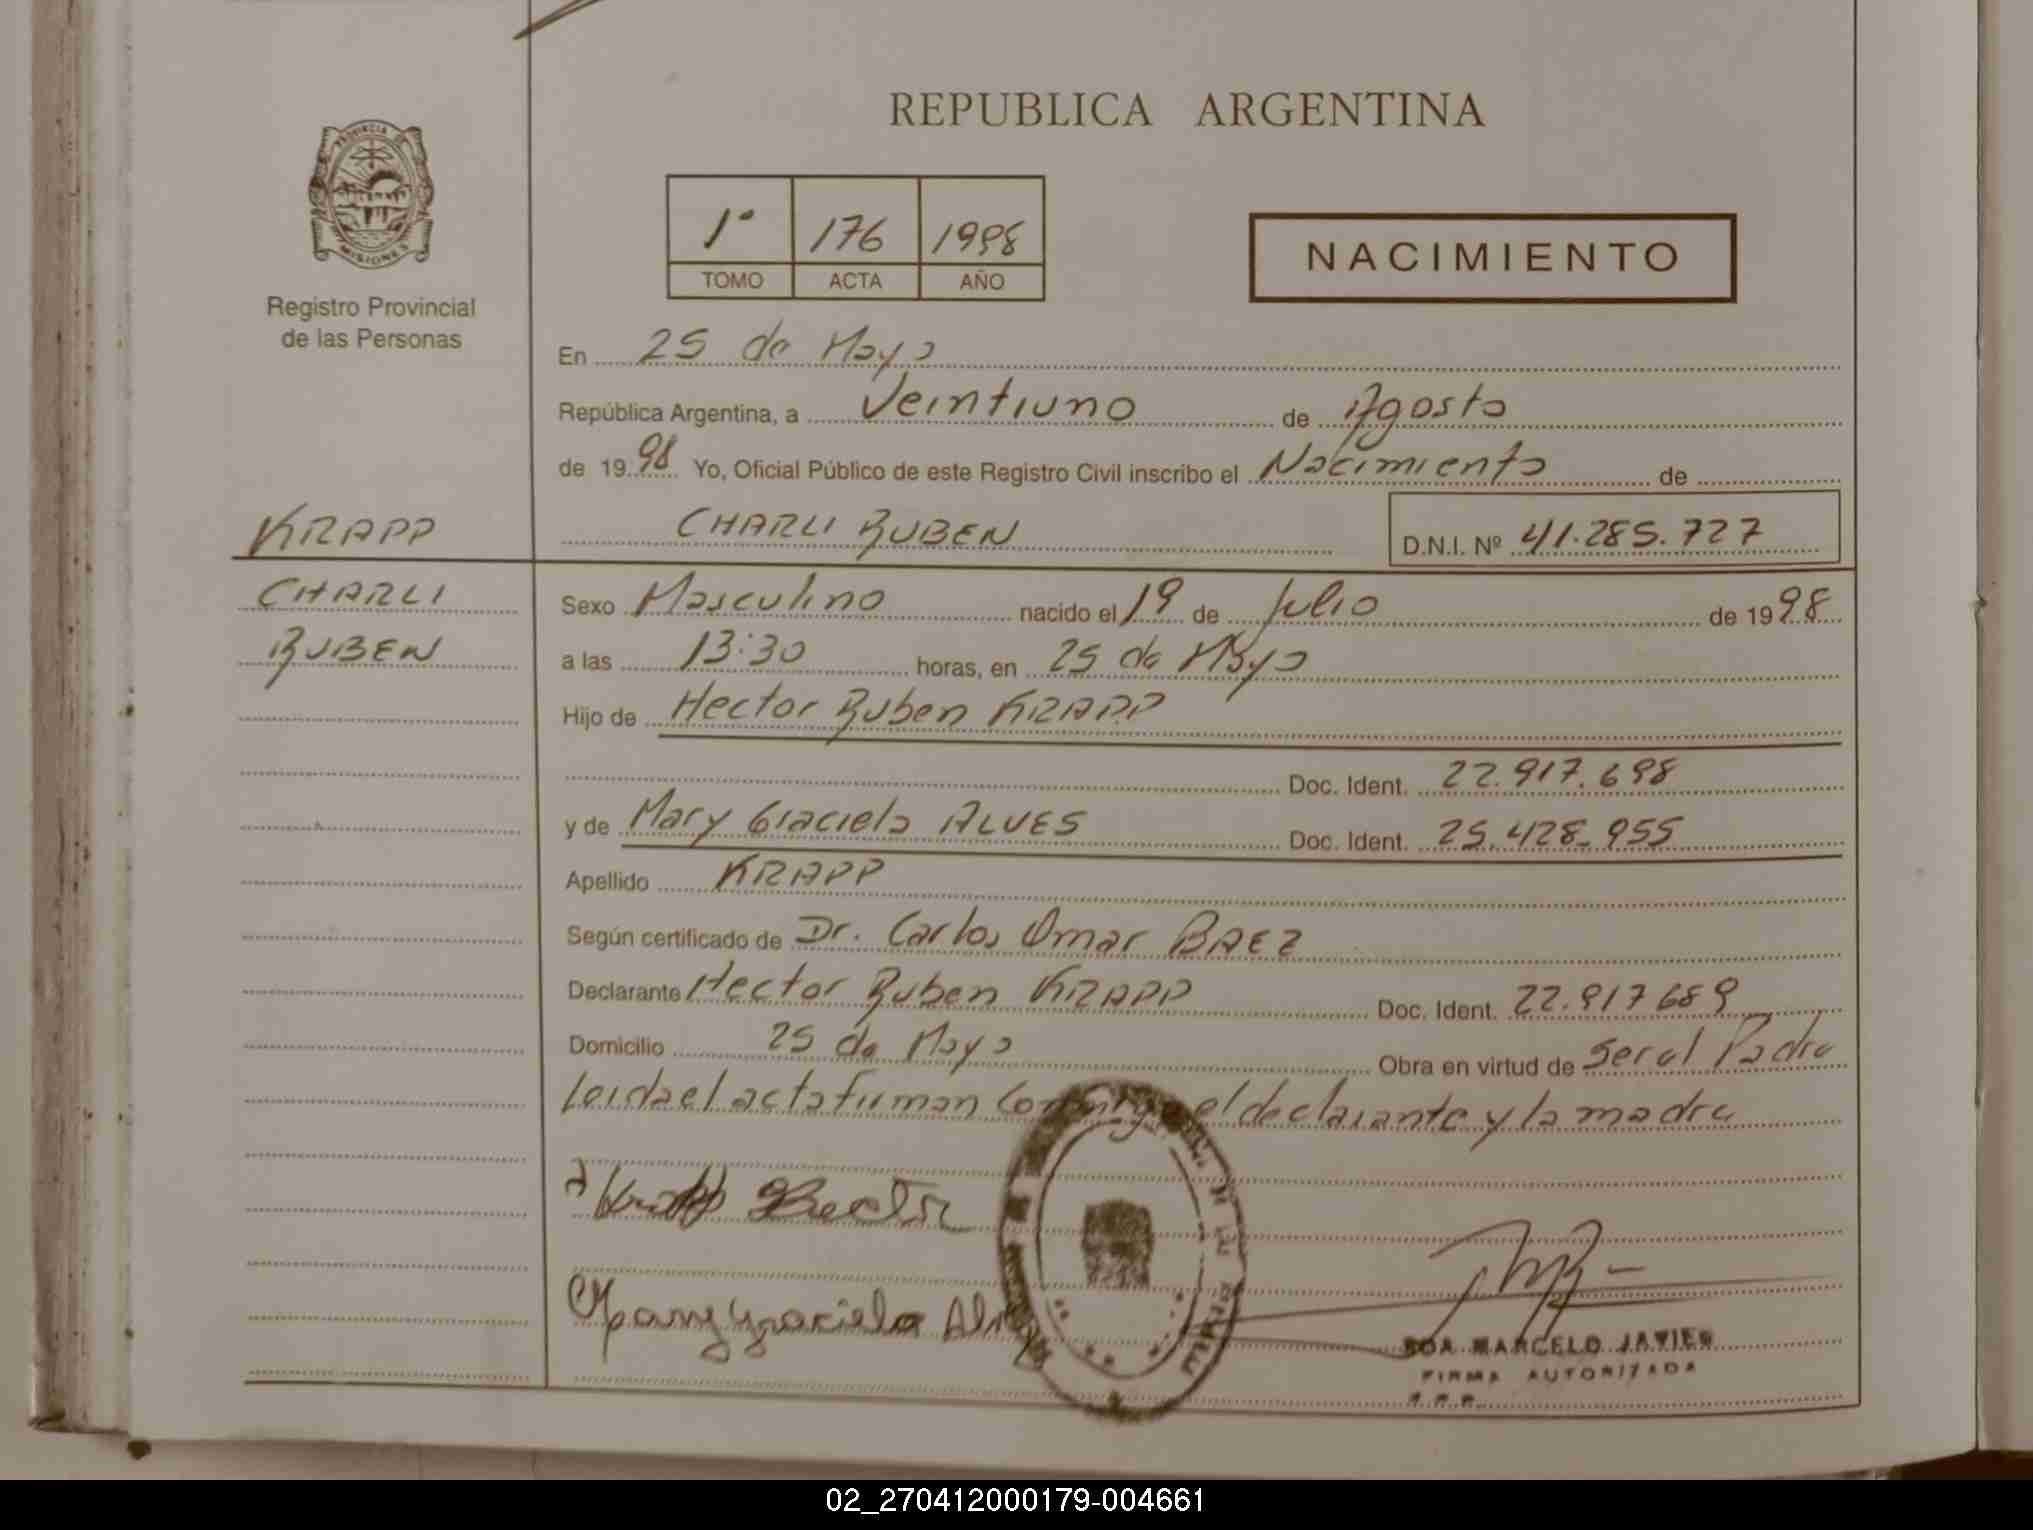 REPUBLICA ARGENTINA
PROVINCIA DE
MISIONES
Registro Provincial
de las Personas
1º 176 1998
TOMO ACTA AÑO
NACIMIENTO
En 25 de Mayo
República Argentina, a Veintiuno de Agosto
de 1998 Yo, Oficial Público de este Registro Civil inscribo el Nacimiento de
KRAPP
CHARLI RUBEN D.N.I. Nº 41.285.727
CHARLI
RUBEN
Sexo Masculino nacido el 19 de Julio de 1998
a las 13:30 horas, en 25 de Mayo
Hijo de Hector Ruben KRAPP
Doc. Ident. 22.917.698
y de Mary Graciela ALVES Doc. Ident. 25.428.955
Apellido KRAPP
Según certificado de Dr. Carlos Omar BAEZ
Declarante Hector Ruben KRAPP Doc. Ident. 22.917689
Domicilio 25 de Mayo Obra en virtud de ser el Padre
Leida el acta firman conmigo el declarante y la madre
Krapp Hector
Mary Graciela Alves
ROA MARCELO JAVIER
FIRMA AUTORIZADA
02_270412000179-004661